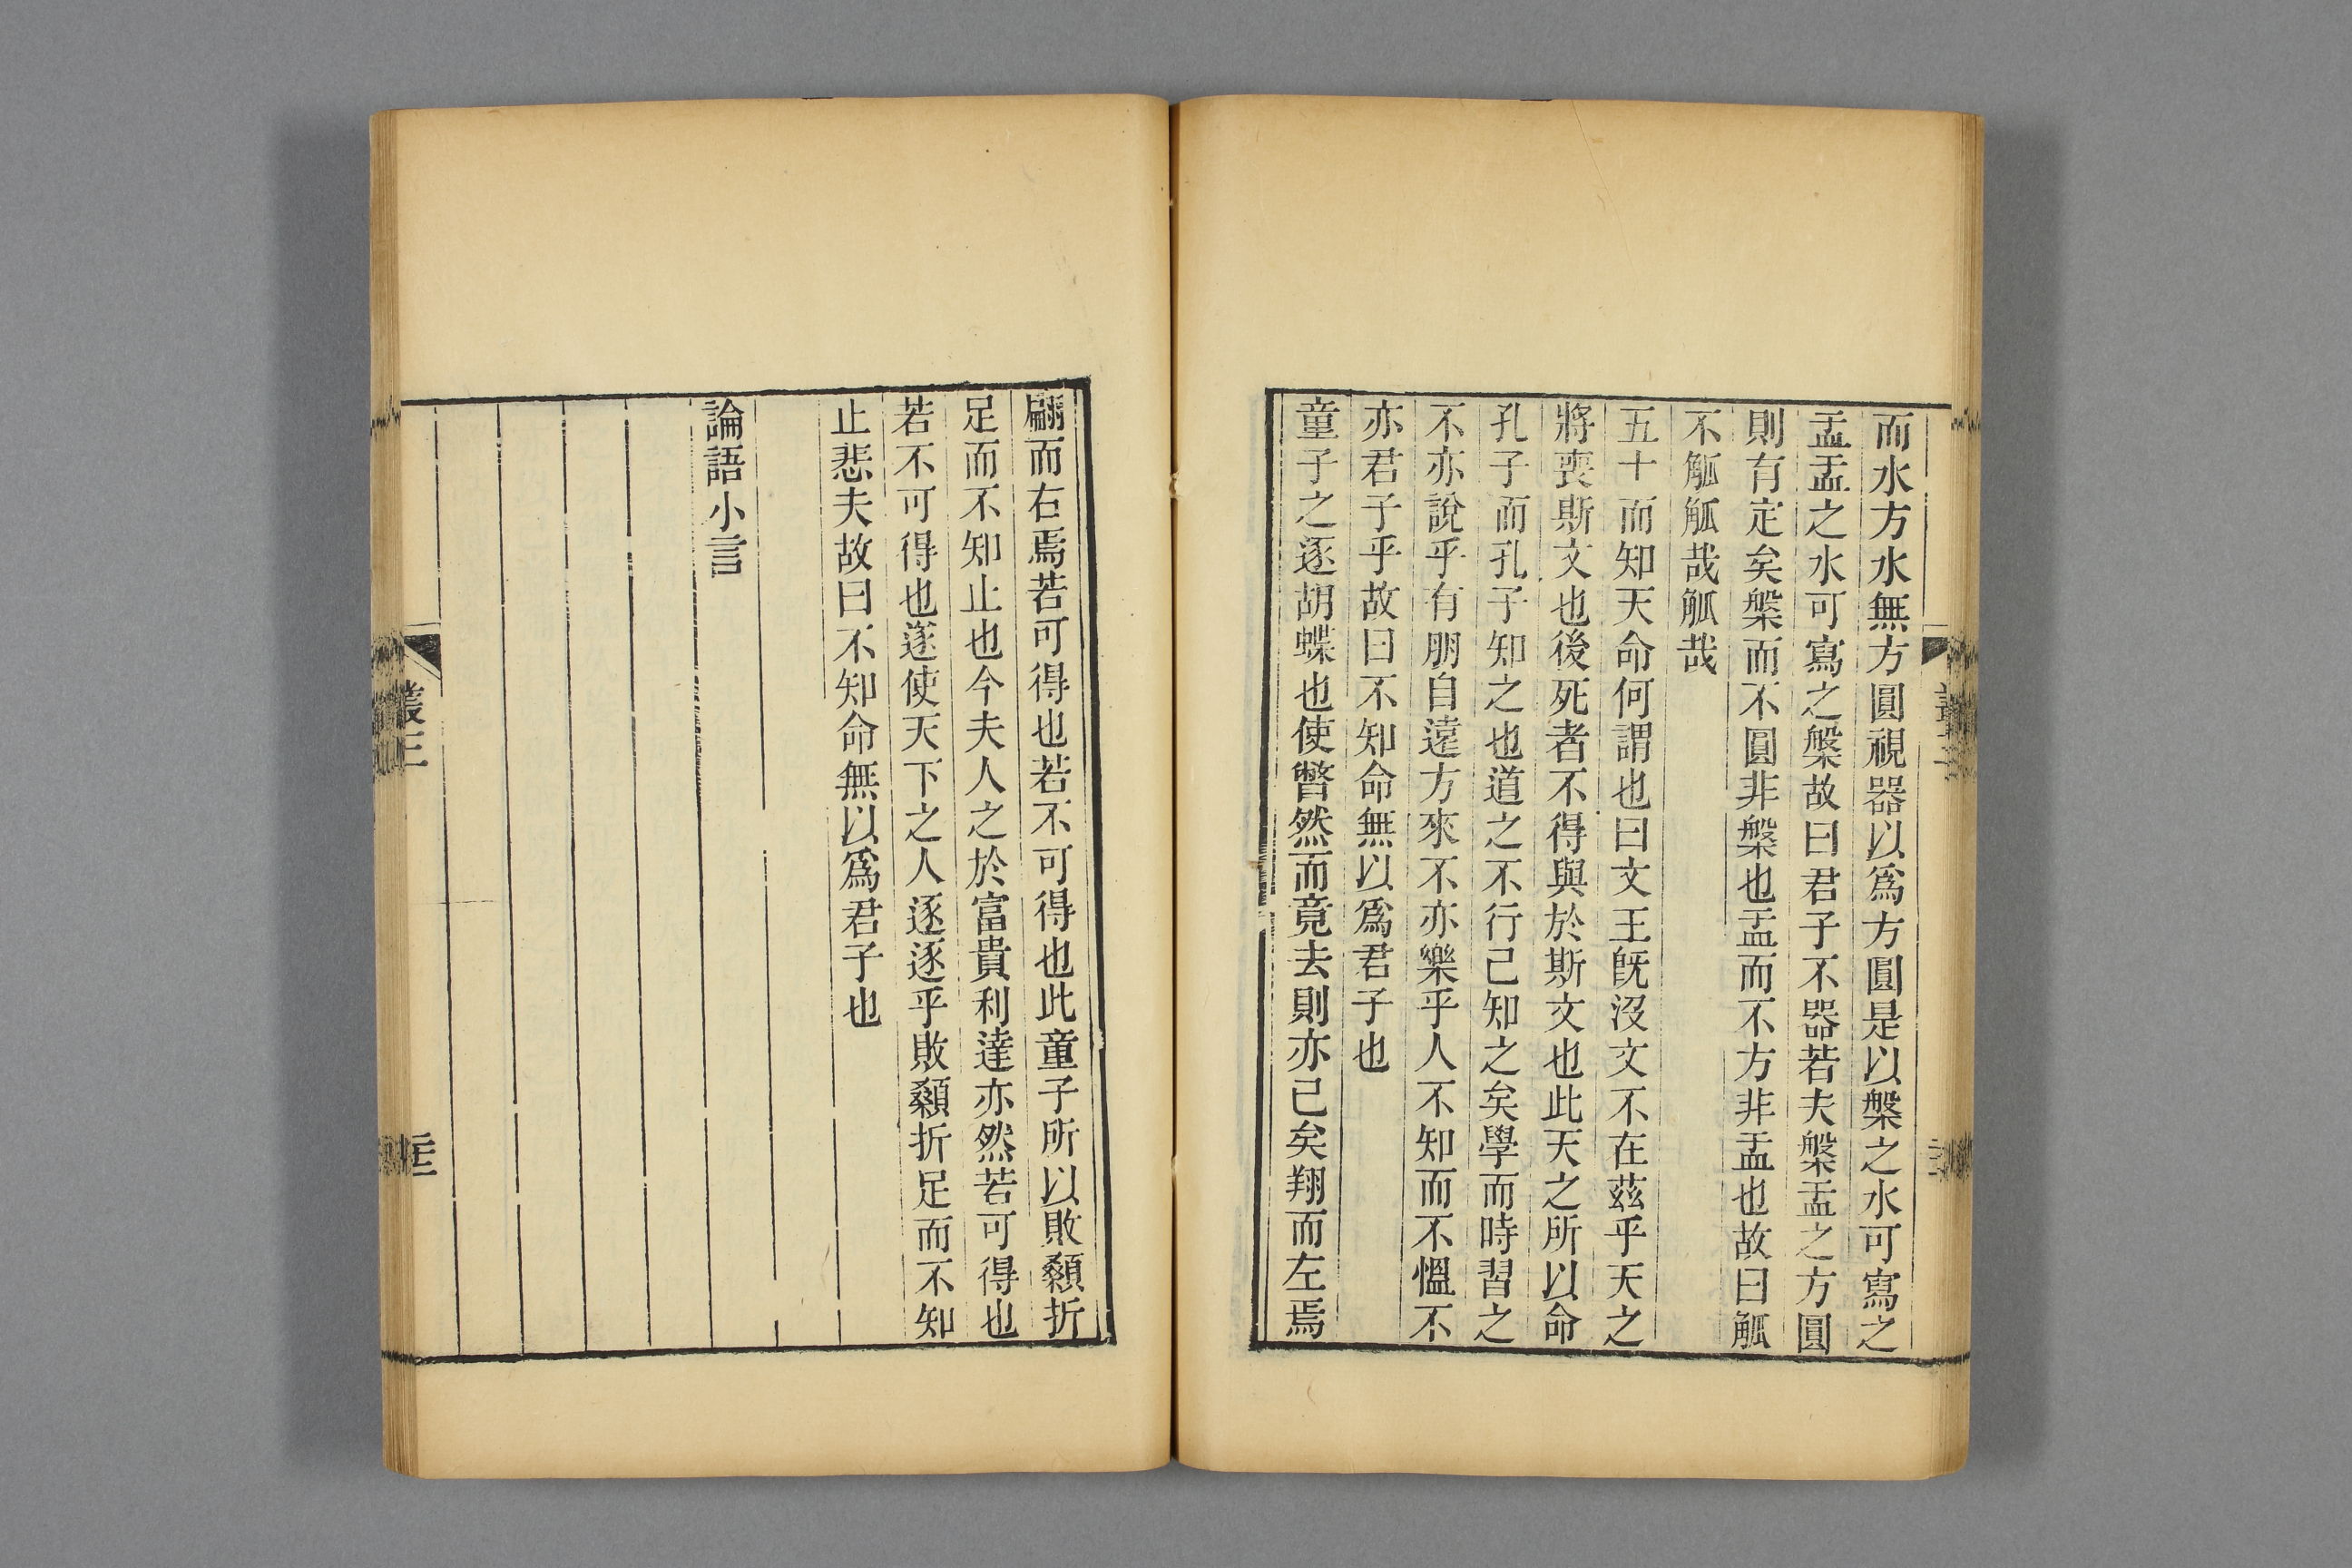 而水方水無方圓視器以爲方圓是以槃之水可寫之
盂盂之水可寫之槃故曰君子不器若夫槃盂之方圓
則有定矣槃而不圓非槃也盂而不方非盂也故曰觚
不觚觚哉觚哉
五十而知天命何謂也曰文王旣沒文不在茲乎天之
將喪斯文也後死者不得與於斯文也此天之所以命
孔子而孔子知之也道之不行已知之矣學而時習之
不亦說乎有朋自遠方來不亦樂乎人不知而不慍不
亦君子乎故曰不知命無以爲君子也
童子之逐胡蝶也使瞥然而竟去則亦已矣翔而左焉
翩而右焉若可得也若不可得也此童子所以敗顙折
足而不知止也今夫人之於富貴利達亦然若可得也
若不可得也遂使天下之人逐逐乎敗顙折足而不知
止悲夫故曰不知命無以爲君子也
論語小言
叢三